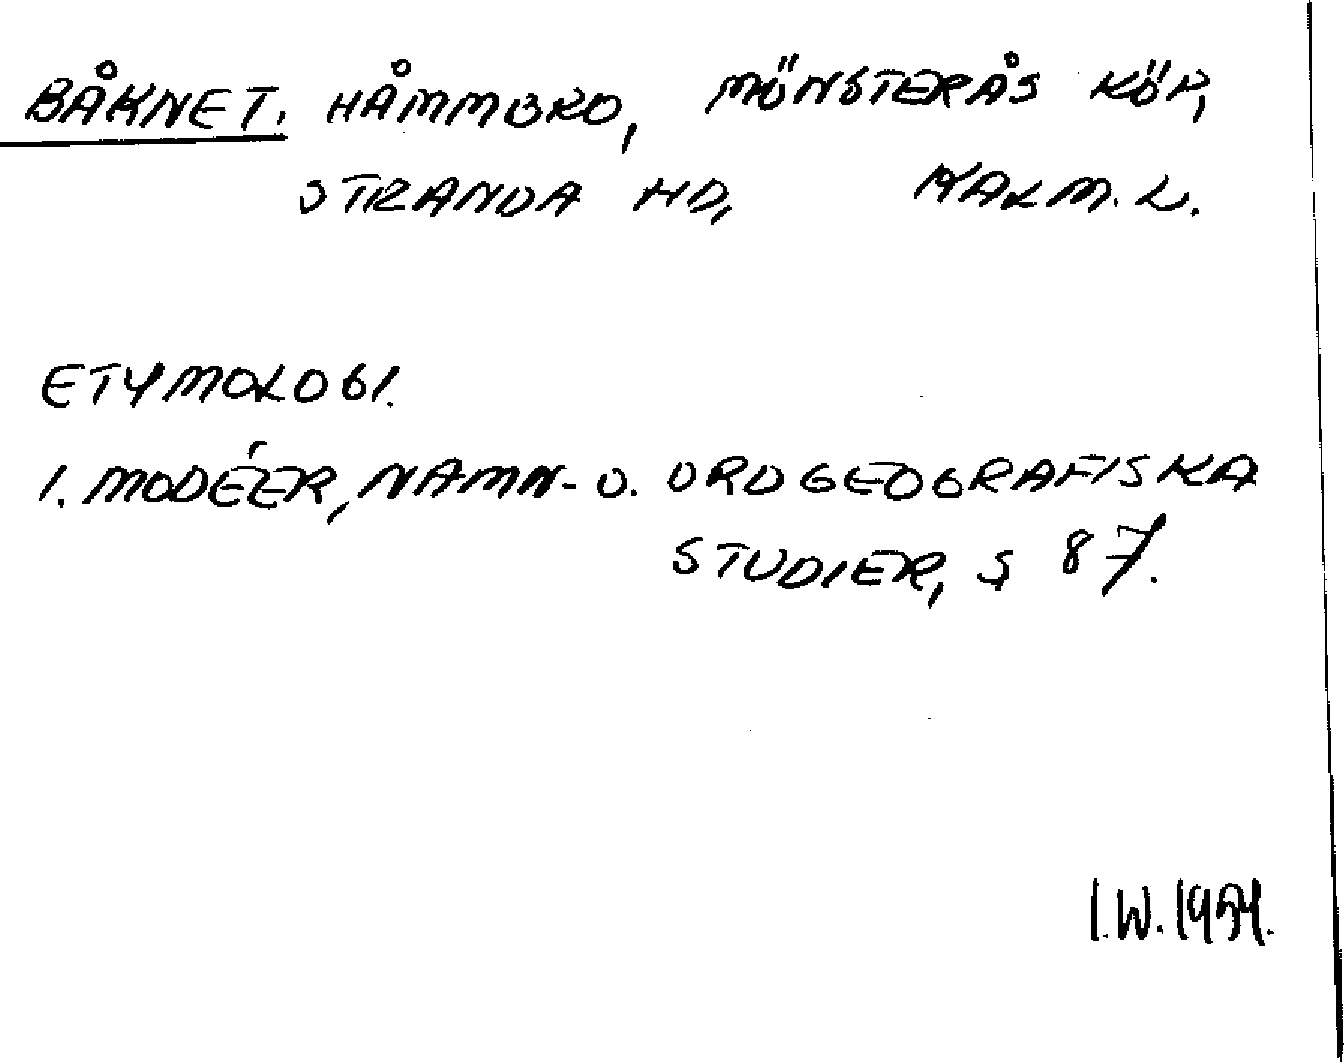 BÅKNET. HÅMMBRO, MÖNSTERÅS KÖP,
STRANDA HD, KALM. L.
ETYMOLOGI.
I. MODÉER, NAMN- O. ORDGEOGRAFISKA
STUDIER, S 87.
I.W. 1954.